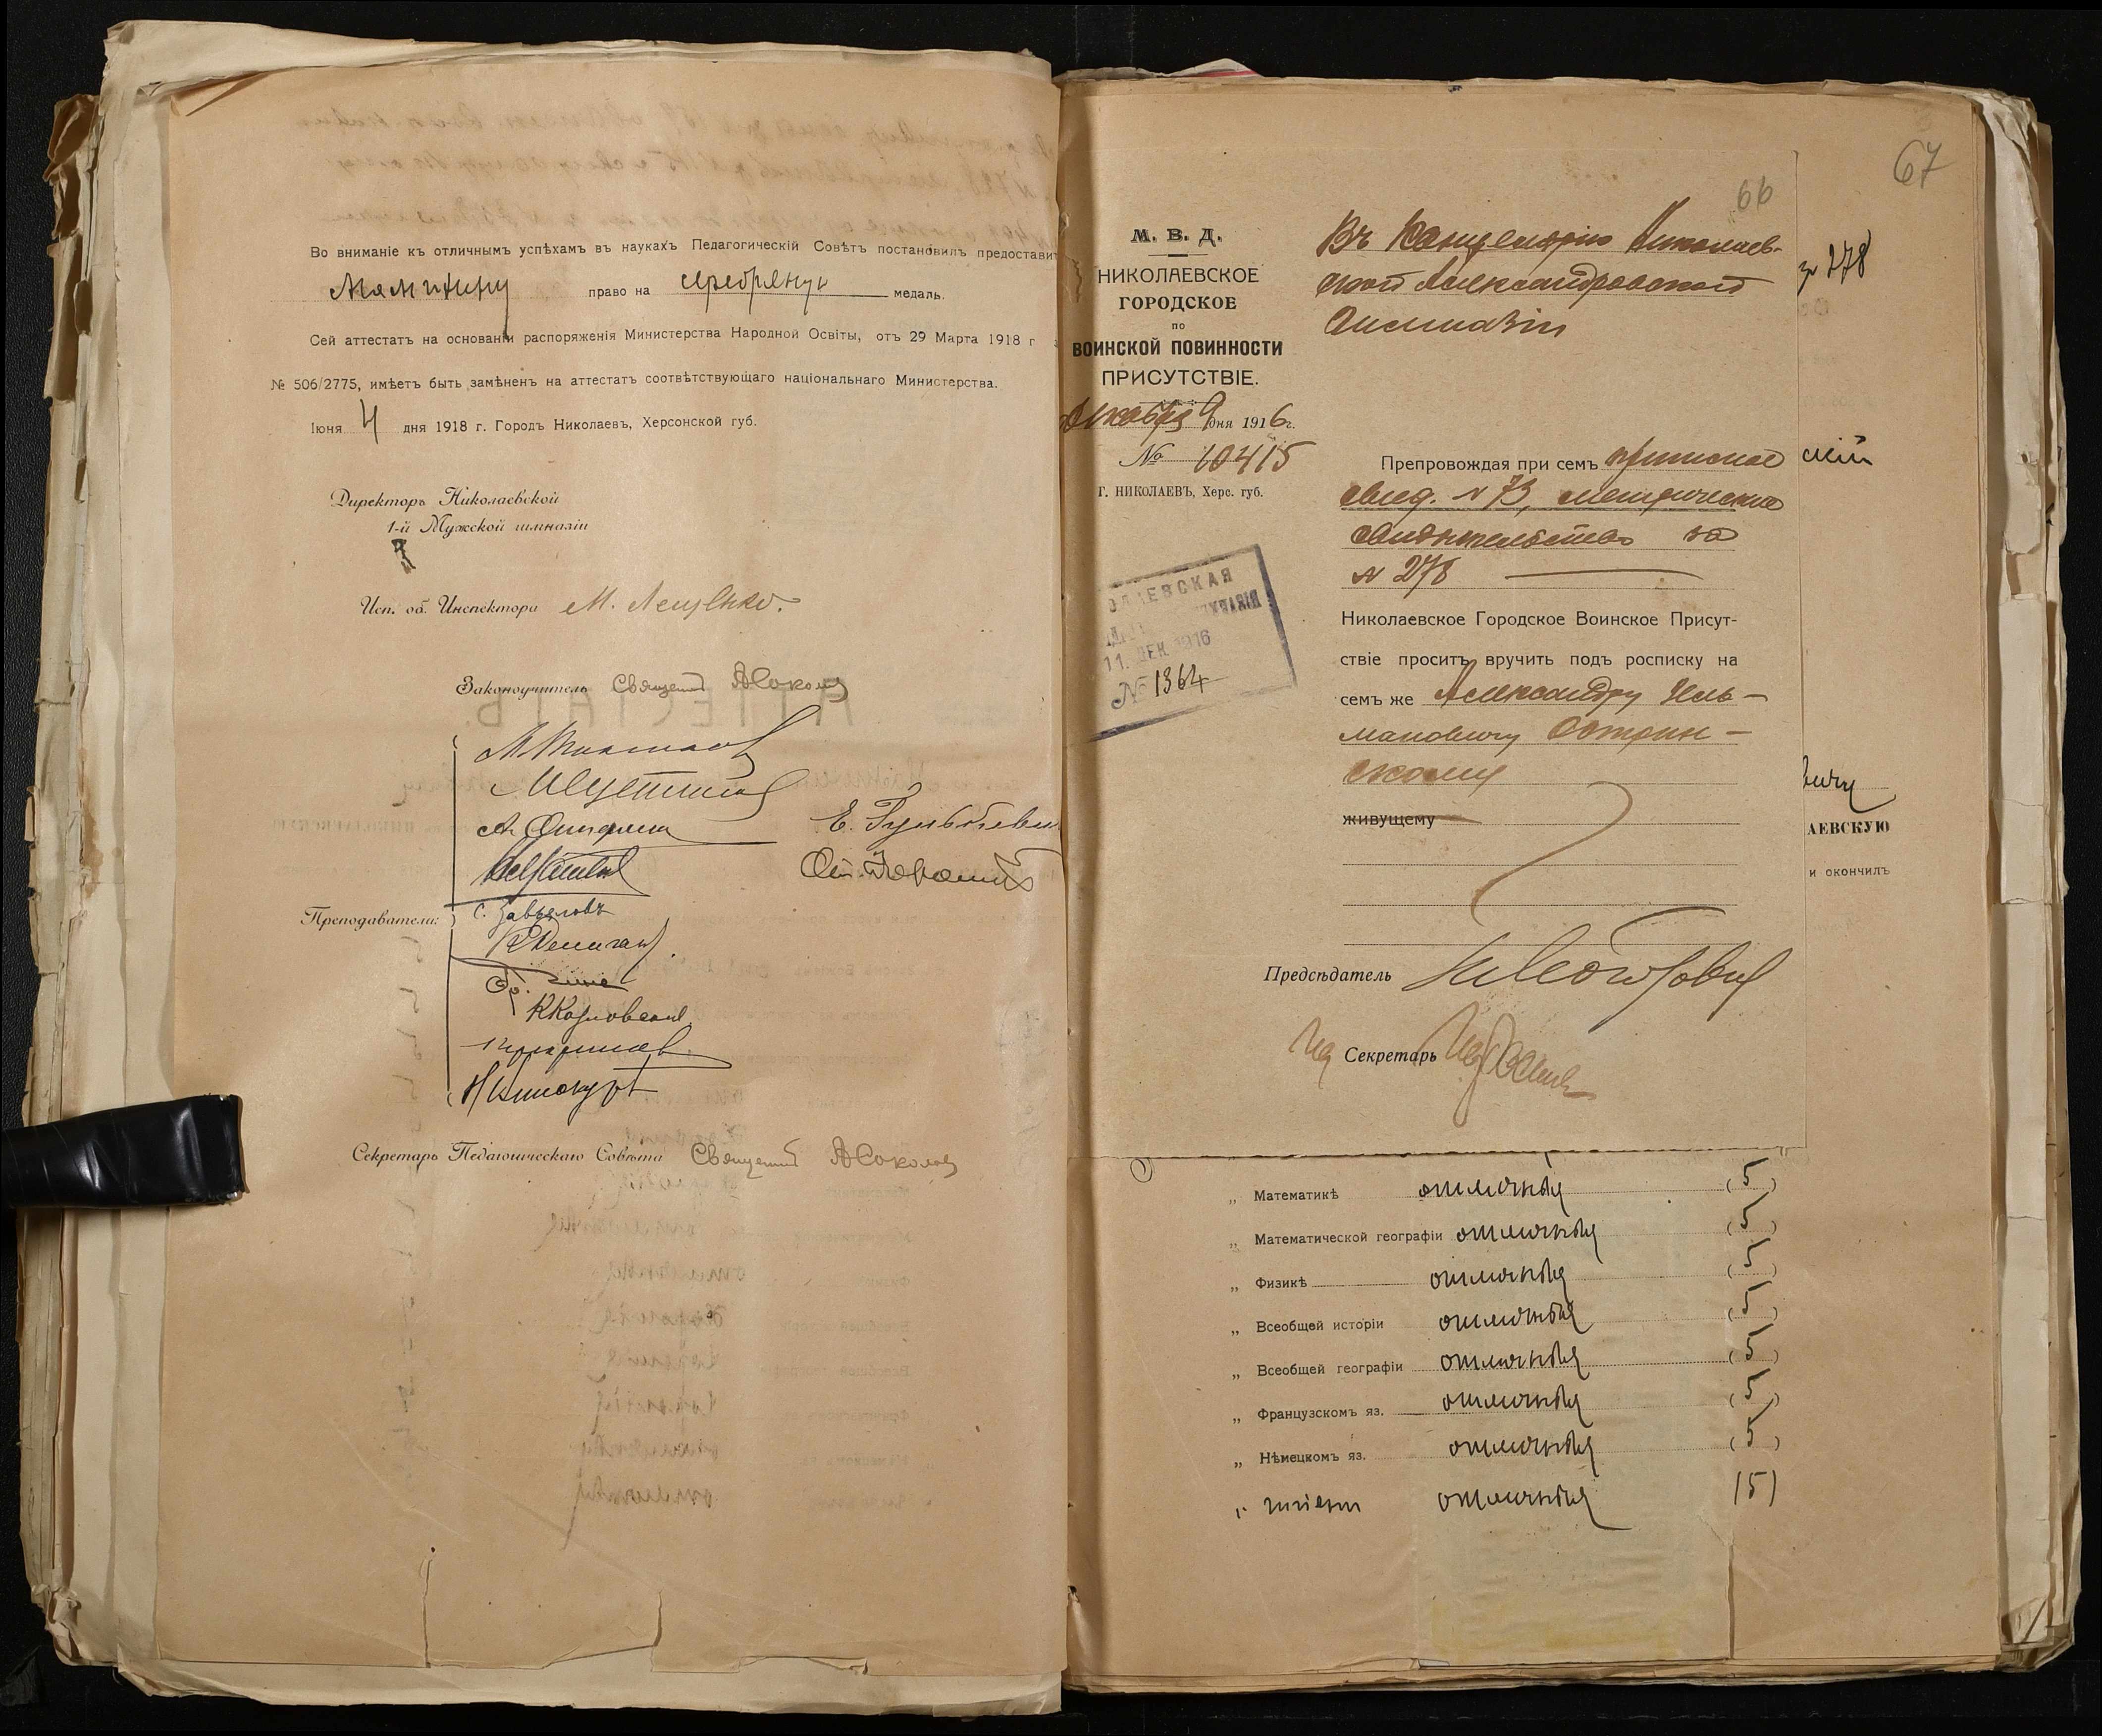 Во вниманіе къ отличнымъ успѣхамъ въ наукахъ Педагогическій Совѣтъ постановилъ предостави
право на серебряную медаль.
Сей аттестатъ на основаніи распоряженія Министерства Народной Освіты, отъ 29 Марта 1918 г
№ 506/2775, имѣетъ быть замѣненъ на аттестатъ соотвѣтствующаго національнаго Министерства.
Іюня 4 дня 1918 г. Городъ Николаевъ, Херсонской губ.
Директоръ Николаевской
1-й Мужской гимназіи
Исп. об. Инспектора М. Лещенко.
Законоучитель Священникъ А Соколовъ
Преподаватели:
С. Завьяловъ
Секретарь Педагогическаго Совѣта Священникъ А Соколовъ
67
66
М. В. Д.
НИКОЛАЕВСКОЕ
ГОРОДСКОЕ
по
ВОИНСКОЙ ПОВИННОСТИ
ПРИСУТСТВІЕ.
Декабря 9 дня 1916 г.
№ 10415
Г. НИКОЛАЕВЪ, Херс. губ.
ОЛАЕВСКАЯ
11. ДЕК 1916
№ 1364
Въ Канцелярію Николаев-
ской Александровской
Гимназіи
Препровождая при семъ приписное
свид. № 73, метрическое
свидѣтельство за
№ 278
Николаевское Городское Воинское Присут-
ствіе проситъ вручить подъ росписку на
семъ же Александру Гель-
мановичу Остри­н-
скому
живущему
Предсѣдатель
Секретарь
278
скій
вичу
АЕВСКУЮ
и окончилъ
„ Математикѣ отличныя (5)
„ Математической географіи отличныя (5)
„ Физикѣ отличныя (5)
„ Всеобщей исторіи отличныя (5)
„ Всеобщей географіи отличныя (5)
„ Французскомъ яз. отличныя (5)
„ Нѣмецкомъ яз. отличныя (5)
„ гигіенѣ отличныя (5)